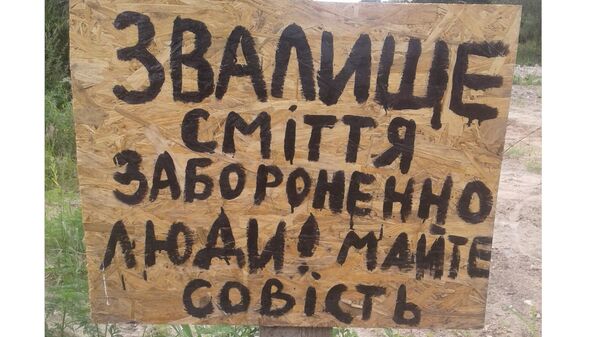 ЗВАЛИЩЕ
СМІТТЯ
ЗАБОРОНЕННО
ЛЮДИ! МАЙТЕ
СОВЇСТЬ